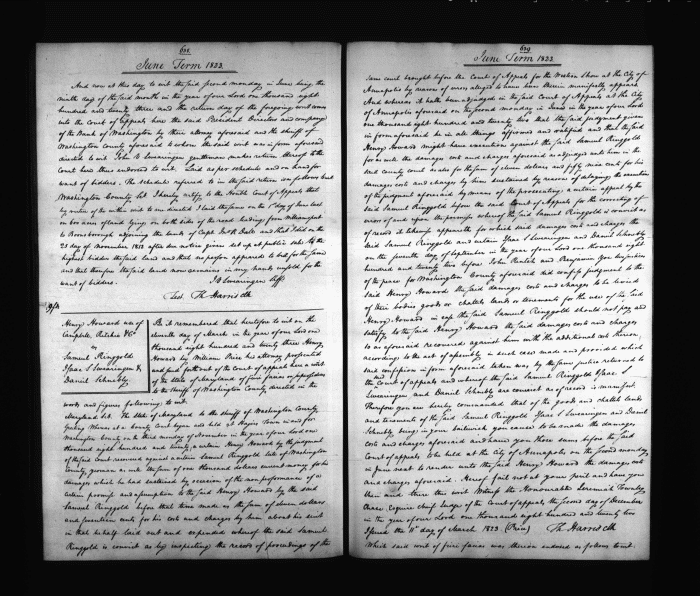 628
June Term 1823.
And now at this day to wit the said second monday in June being the
ninth day of the said month in the year of our Lord one thousand eight
hundred and twenty three and the return day of the foregoing writ comes
into the Court of Appeals here the said President Directors and company
of the Bank of Washington by their attorney aforesaid and the sheriff of
Washington county aforesaid to whom the said writ was in form aforesaid
directed to wit John V Swearingen gentleman makes return thereof to the
Court here thus endorsed to wit. Laid as per schedule and on hand for
want of bidders. The schedule referred to in the said return is as follows to wit
Washington County Sct I hereby certify to the Honble Court of Appeals that
by virtue of the within writ to me directed I laid the same on the day of June last
on two acres of land lying on both sides of the road leading from Williamsport
to Boonsborough adjoining the lands of Capt and that I did on the
23 day of November 1822 after due notice given set up at public sale to the
highest bidder the said land and that no person appeared to bid for the same
and that therefore the said land now remains in my hands unsold for the
want of bidders.
Swearingen Shff
Test Th Harris Clk
Henry Howard use of
Campbell, Ritchie & Co
vs
Samuel Ringgold
Isaac S Swearingen &
Daniel Schnebly
Be it remembered that heretofore to wit on the
eleventh day of March in the year of our Lord one
thousand eight hundred and twenty three Henry
Howard by William Price his attorney prosecuted
and sued forth out of the Court of appeals here a writ
of the State of Maryland of fieri facias
to the Sheriff of Washington County directed in the
words and figures following to wit.
Maryland Sct. The State of Maryland to the Sheriff of Washington County
Greeting Whereas at a County Court begun and held at Hagers Town in and for
Washington County on the third monday of November in the year of our Lord one
thousand eight hundred and twenty a certain Henry Howard by the judgment
of the said Court recovered against a certain Samuel Ringgold late of Washington
County, as well the sum of one thousand dollars current money for his
damages which he had sustained by occasion of the non performance of a
certain promise and assumption to the said Henry Howard by the said
Samuel Ringgold before that time made as the sum of eleven dollars
and cents for his costs and charges by him about his suit
in that behalf laid out and expended whereof the said Samuel
Ringgold is convict as by inspecting the record of proceedings of the
629
June Term 1823.
same court brought before the Court of Appeals for the Western Shore at the City of
Annapolis by reason of errors alleged to have been therein manifestly appears
And whereas it hath been adjudged in the said Court of Appeals at the City
of Annapolis aforesaid on the second monday in June in the year of our Lord
one thousand eight hundred and twenty two that the said judgment given
in form aforesaid be in all things affirmed and ratified and that the said
Henry Howard might have execution against the said Samuel Ringgold
for as well the damages costs and charges aforesaid as adjudged unto him in the
said county court as also for the sum of eleven dollars and fifty nine cents for his
damages costs and charges by him sustained by reason of delaying the execution
of the judgment aforesaid by means of the prosecuting a certain appeal by the
said Samuel Ringgold before the said Court of Appeals for the correcting of
errors of and upon the premises whereof the said Samuel Ringgold is convict as
of record it likewise appeareth for which said damages costs and charges the
said Samuel Ringgold and certain Isaac S Swearingen and Daniel Schnebly
on the seventh day of September in the year of our Lord one thousand eight
hundred and twenty two before John and Benjamin esquires justices
of the peace for Washington County aforesaid did confess judgment to the
said Henry Howard the said damages costs and charges to be levied
of their bodies goods or chattels lands or tenements for the use of the said
Henry Howard in case the said Samuel Ringgold should not pay and
satisfy to the said Henry Howard the said damages costs and charges
so as aforesaid recovered against him with the additional costs thereon
according to the act of assembly in such case made and provided which
said confession in form aforesaid taken was by the same justices returned to
the Court of appeals and whereof the said Samuel Ringgold Isaac S
Swearingen and Daniel Schnebly are convict as of record is manifest.
Therefore you are hereby commanded that of the goods and chattels lands
and tenements of the said Samuel Ringgold Isaac S Swearingen and Daniel
Schnebly being in your bailiwick you cause to be made the damages
costs and charges aforesaid and have you those sums before the said
Court of appeals to be held at the City of Annapolis on the second monday
in June next to render unto the said Henry Howard the damages costs
and charges aforesaid. Hereof fail not at your peril and have you
then and there this writ Witness the Honourable Jeremiah Townley
Chase Esquire chief Judge of the Court of appeals the second day of December
in the year of our Lord one thousand eight hundred and twenty two
Issued the 11th day of March 1823. (Price) Th Harris Clk
Which said writ of fieri facias was thereon endorsed as follows to wit.